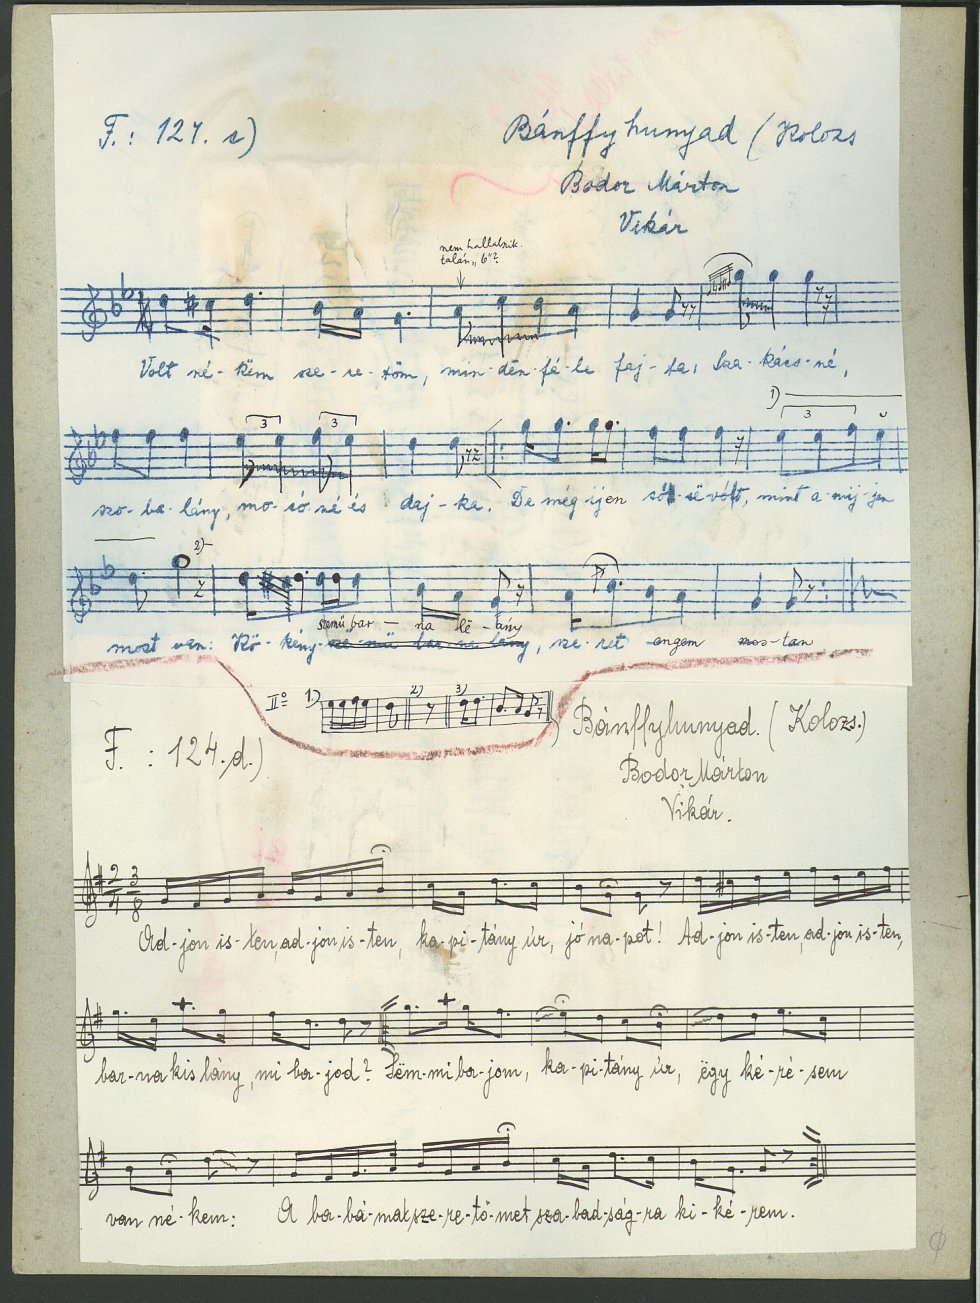 F.: 127. a)
Bánffyhunyad (Kolozs
Bodor Márton
Vikár
nem hallatszik.
talán „b"?
Volt né-këm sze-re-töm, min-dën-fé-le faj-ta, Sza-kács-né,
3 3 1) 3
szo-ba-lány, mo-só-né és daj-ka. De még ijen sö-së vót, mint a mij-jen
2)
szëmű bar - na lë - ány
most van: Kö-kény-szë-mű bar-na lány, sze-ret engem mos-tan
IIº 1.) 2) 3)
F. : 124. d.)
Bánffyhunyad. (Kolozs.)
Bodor Márton
Vikár.
2/4 3/8
Ad-jon is-ten, ad-jon is-ten, ka-pi-tány úr, jó na-pot! Ad-jon is-ten, ad-jon is-ten,
bar-na kis lány, mi ba-jod? Sëm-mi ba-jom, ka-pi-tány úr, ëgy ké-ré-sem
van né-kem: A ba-bá-mat, sze-re-tö-met sza-bad-ság-ra ki-ké-rem.